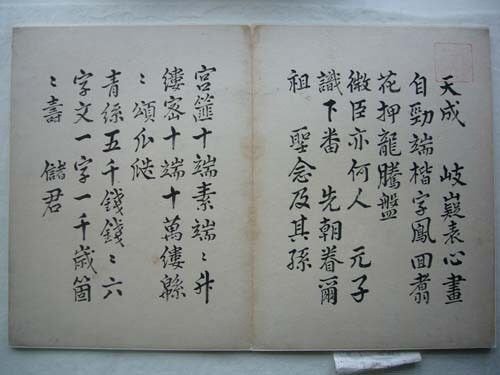 天成 岐嶷表心畫
自勁端楷字鳳回翥
花押龍騰盤
微臣亦何人 元子
識下番 先朝眷爾
祖 聖念及其孫
宮篚十端素端〻升
縷密十端十萬縷緜
〻頌瓜瓞
青絲五千錢錢〻六
字文一字一千歲箇
〻壽 儲君